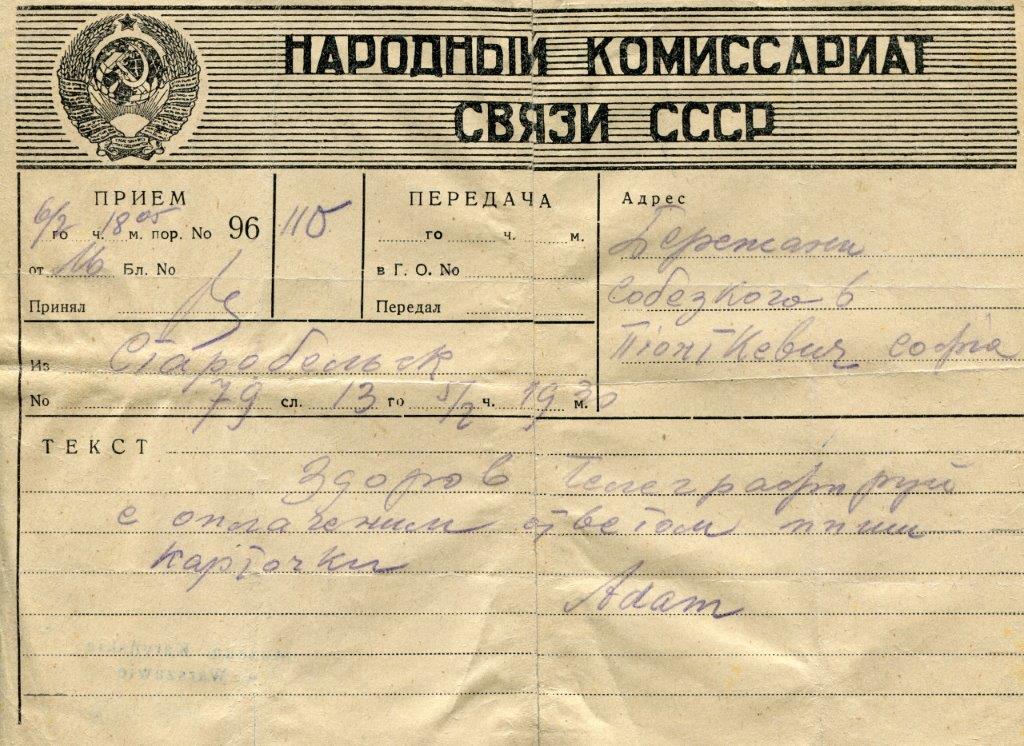 НАРОДНЫЙ КОМИССАРИАТ
СВЯЗИ СССР
ПРИЕМ
6/2 го ч. 18 05 м. пор. No 96
от Бл. No
Принял
110
ПЕРЕДАЧА
го ч. м.
в Г. О. No
Передал
Адрес
Бережани
Собезкого 6
Піонткевич Софіа
Из Старобельск
No 79 сл. 13 го 5/2 ч. 19 30 м.
ТЕКСТ
Здоров Телеграфируй
с оплаченим ответом пиши
карточки
Adam